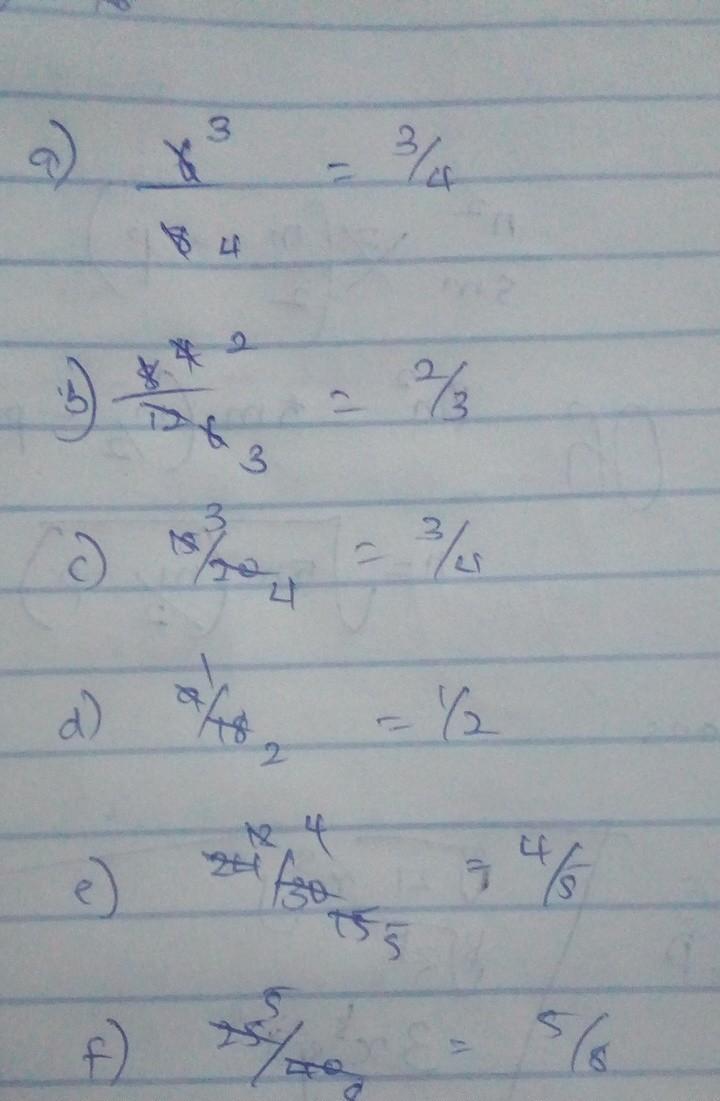 a) 6 3 / 8 4 = 3/4
b) 8 4 2 / 12 6 3 = 2/3
c) 15 3 / 20 4 = 3/4
d) 9 1 / 18 2 = 1/2
e) 24 12 4 / 30 15 5 = 4/5
f) 25 5 / 40 8 = 5/8